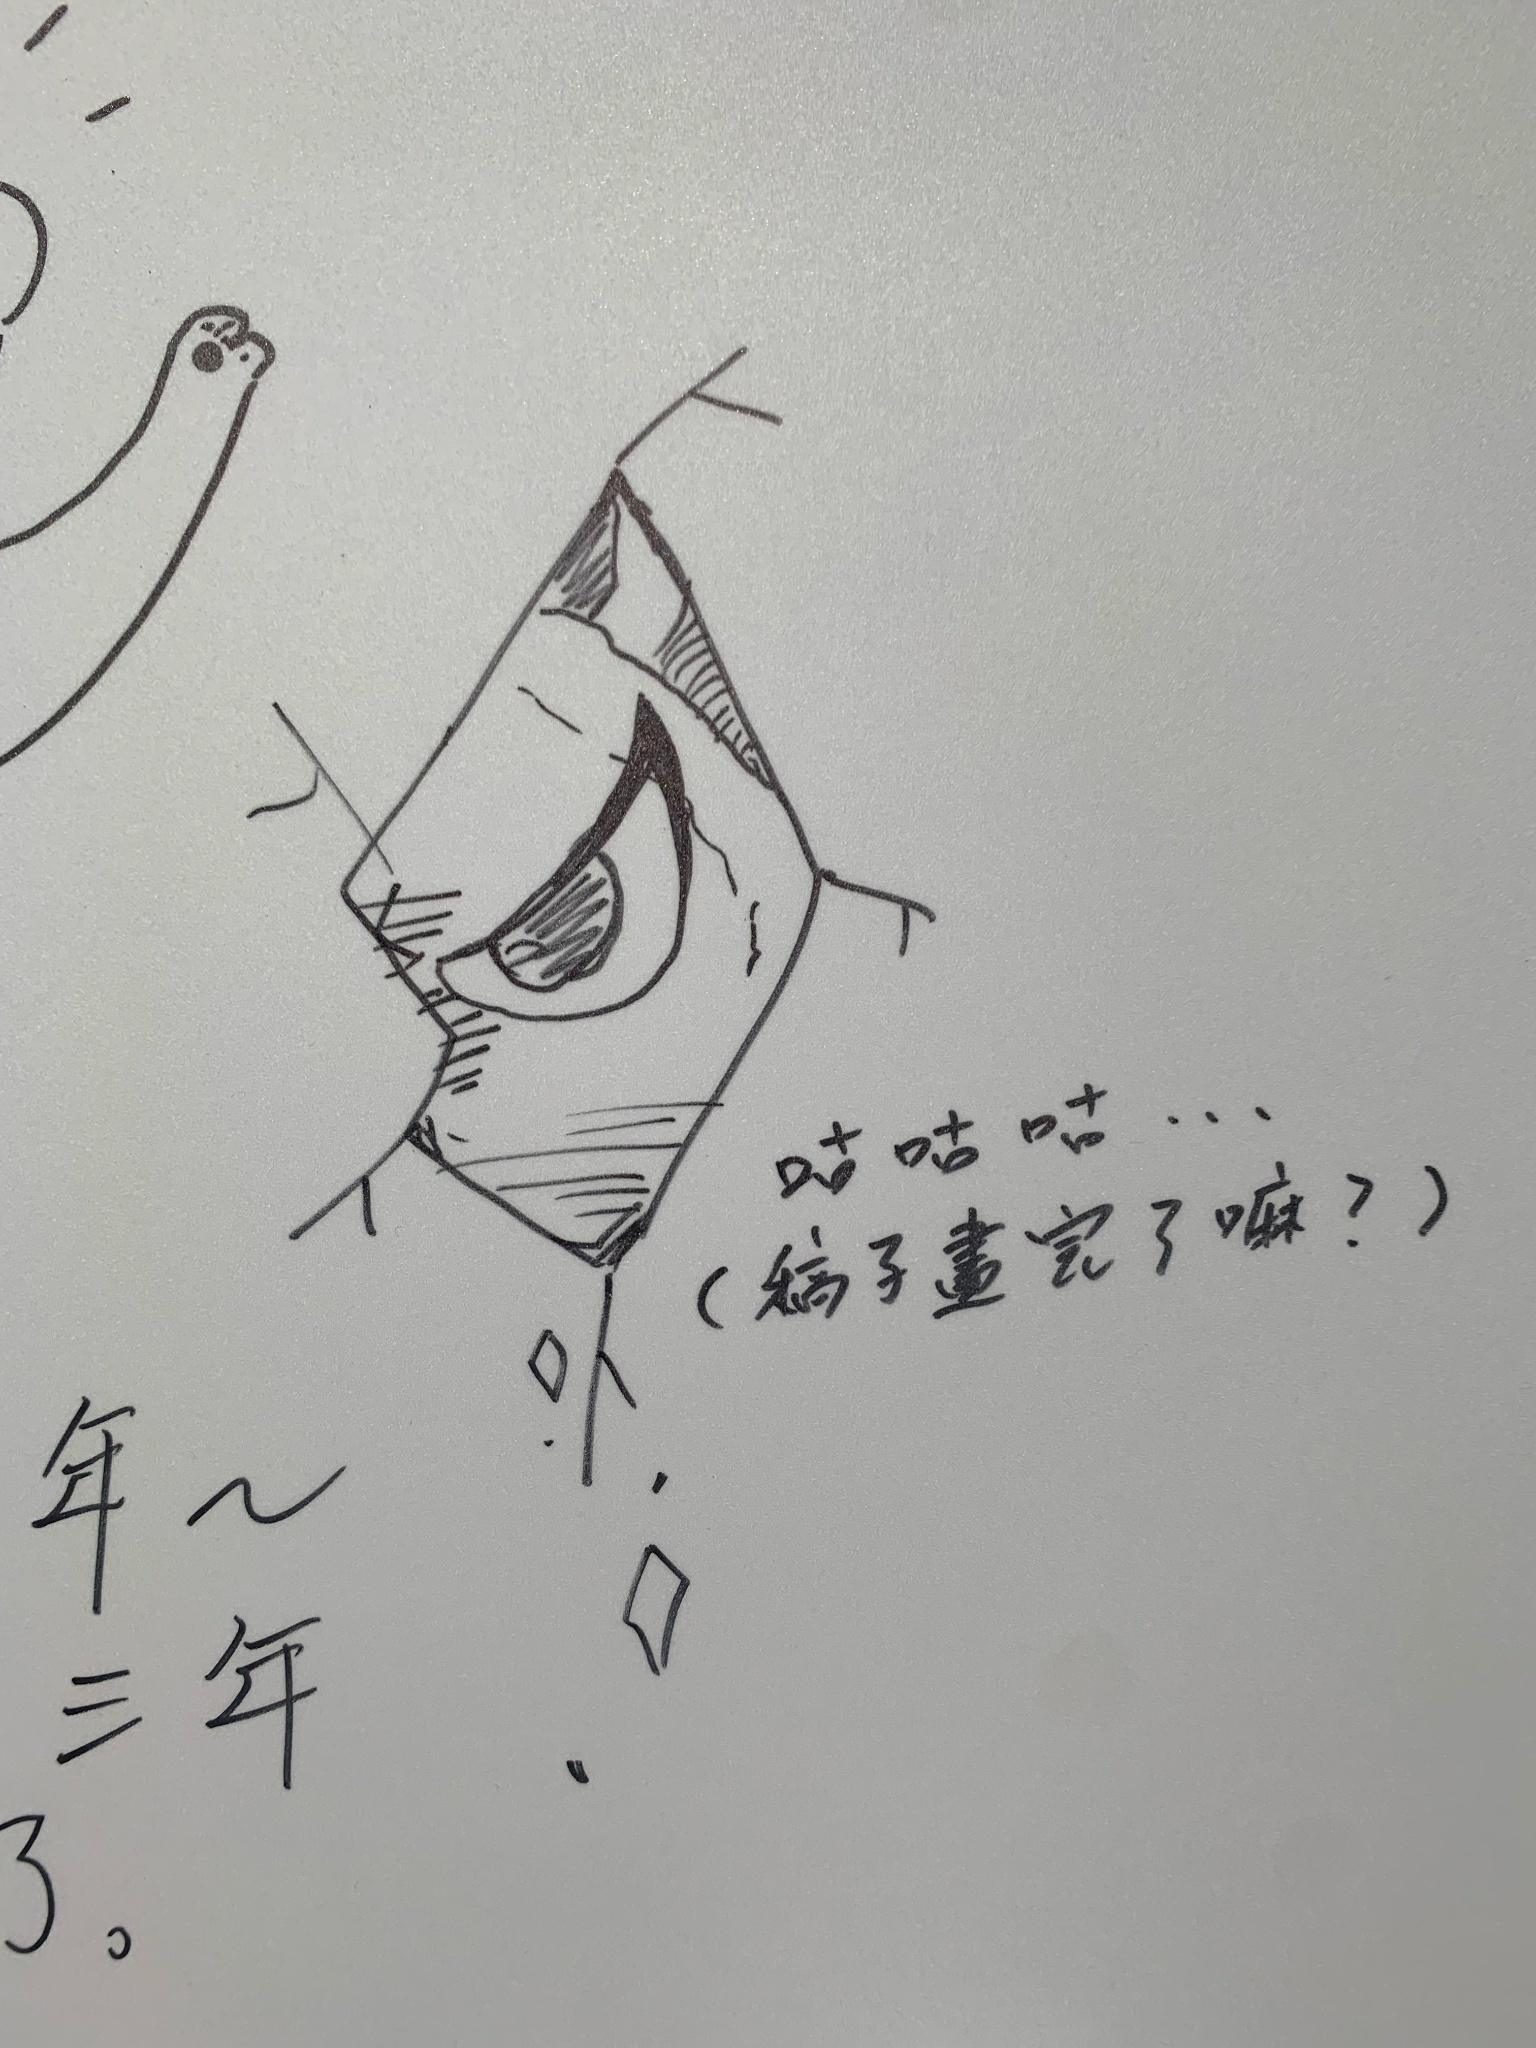 咕咕咕...
(稿子畫完了嘛?)
年~
三年
了。